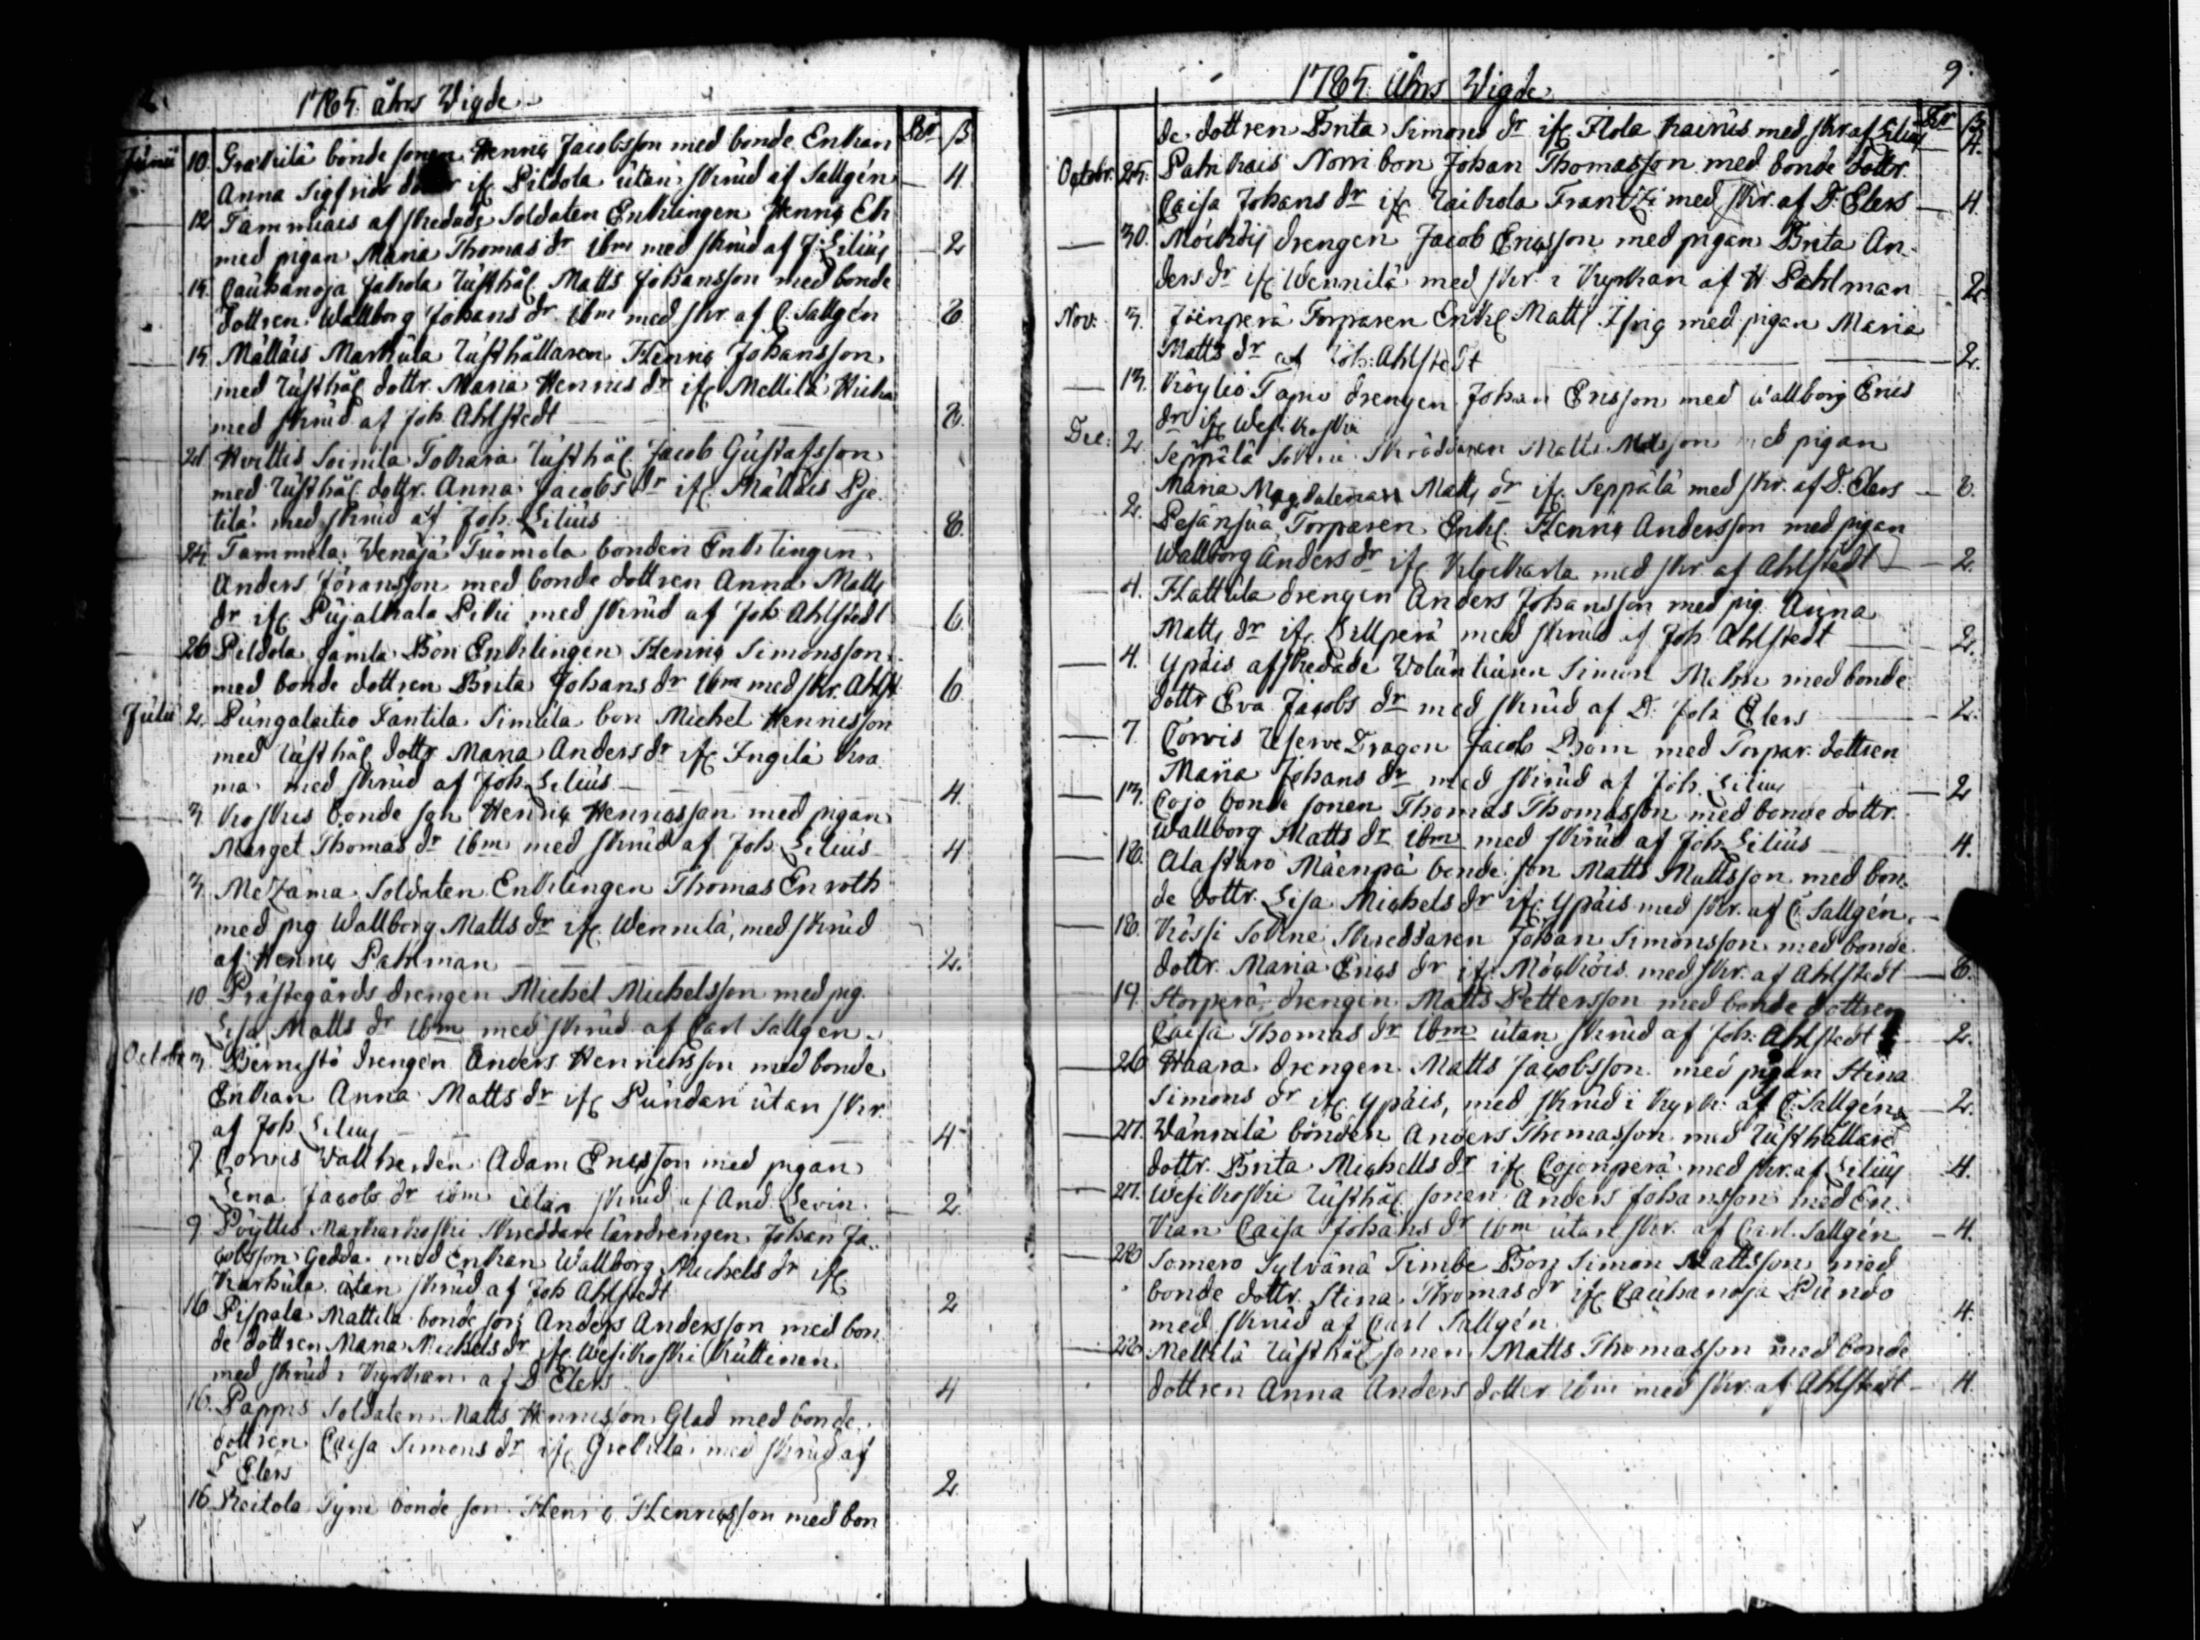 1785 åhrs Vigde
Rdr ß
Junii 10. Gräkilä bonde sonen Henric Jacobsson med bonde Enkan
Anna Sigfrids dotter ifr. Pildola utan skrud af Sallgén 4
12 Tammiais afskedade Soldaten Enklingen Henric Ek
med pigan Maria Thomas dr ibm med skrud af J. Lilius 2
15. Cauhanoja Jakola Rusthål. Matts Johansson med bonde
dottren Wallborg Johans dr ibm med skr. af C. Sallgén 6.
15 Mälläis Markula Rusthållaren Henric Johansson
med Rusthål. dottr. Maria Henrics dr ifr. Mellilä
med skrud af Joh. Ahlstedt 6.
21 Hvittis Soinila Tokara Rusthål. Jacob Gustafsson
med Rusthål. dottr. Anna Jacobs dr ifr. Mälläis Pje
tilä med skrud af Joh. Lilius 6.
24. Tammela Wenäjä Tuomola bonden Enklingen
Anders Jöransson med bonde dottren Anna Matts
dr ifr. Pujalkala Pikii med skrud af Joh. Ahlstedt 6
26 Pildola Jamila Bon Enklingen Henric Simonsson
med bonde dottren Brita Johans dr ibm med skr. Ahlst 6
Julii 2. Pungalaitio Fantila Simula bon Michel Henricsson
med Rusthål dottr Maria Anders dr ifr Ingilä Kra
ma med skrud af Joh. Lilius 4.
3. Koskis bonde son Henric Henricsson med pigan
Marget Thomas dr ibm med skrud af Joh. Lilius 4
3. Mezäma Soldaten Enklingen Thomas Enroth
med pig Wallborg Matts dr ifr. Wennilä, med skrud
af Henric Pahlman 2.
10 Prästegårds drengen Michel Michelsson med pig.
Lisa Matts dr ibm med skrud af Carl Sallgen.
October 3. drengen Anders Henrichsson med bonde
Enkan Anna Matts dr ifr Pundari utan skr.
af Joh. Lilius 4
9 Corvis Wallherden Adam Ericsson med pigan
Lena Jacobs dr ibm utan skrud af And. Levin. 2
9 Pöyttis Markarkoski Skreddare lärdrengen Johan Ja
cobsson Gedda med Enkan Wallborg Michels dr ifr
Karhula utan skrud af Joh Ahlstedt 2
16 Pispala Mattila bonde son Anders Andersson med bon
de dottren Maria Michels dr ifr Wesikoski Kuttinen
med skrud i Kyrkan af D Elers 4
16. Pappis Soldaten Matts Henricsson Glad med bonde
dottren Caisa Simons dr ifr Grekilä med skrud af
Elers 2
16 Raitola bonde son Henric Henricsson med bon
1785 Åhrs Vigde 9.
Rdr ß
de dottren Brita Simons dr ifr. Flola med skr. af Lilius 4.
Octobr. 25. Norri bon Johan Thomasson med bonde dottr.
Caisa Johans dr ifr. Raikola Frantzi med skr. af D. Elers 4.
30. Möcköis drengen Jacob Ericsson med pigan Brita An
ders dr ifr Wennilä med skr. i Kyrkan af H Pahlman 2
Nov. 3. Jöenperä Torparen Enkl Matts Isrig med pigan Maria
Matts dr af Joh: Ahlstedt 2.
13. Köyliö drengen Johan Ericsson med Wallborg Erics
dr ifr Wesikoskii
Dec: 2 Seppälä Sokne Skräddaren Matts med pigan
Maria Magdalena Matts dr ifr. Seppälä med skr. af D. Elers 6.
2. Pesänsuu Torparen Enkl. Henric Andersson med pigan
Wallborg Anders dr ifr. med skr. af Ahlstedt 2.
4. Hattula drengen Anders Johansson med pig. Anna
Matts dr ifr. Sillperä med skrud af Joh Ahlstedt 2.
4. Ypäis afskedade Woluntairen Simon med bonde
dottr Eva Jacobs dr med skrud af D. Joh Elers 2.
7. Corvis Reserve Dragon Jacob Bom med Torpar dottren
Maria Johans dr med skrud af Joh. Lilius 2
13. Cojo bonde sonen Thomas Thomasson med bonde dottr.
Wallborg Matts dr ibm med skrud af Joh Lilius 4.
18. Alastaro Mäenpä bonde son Matts Mattsson med bon
de dottr. Lisa Michels dr ifr. Ypäis med skr. af C. Sallgén.
18. Kössi Sokne Skreddaren Johan Simonsson med bonde
dottr. Maria Erics dr ifr. Möckiöis med skr. af Ahlstedt 6.
19. Storperä drengen Matts Pettersson med bonde dottren
Caisa Thomas dr ibm utan skrud af Joh: Ahlstedt 2.
26 Haara drengen Matts Jacobsson med pigan Stina
Simons dr ifr. Ypäis, med skrud i Kyrk: af C: Sallgén 2.
27. Wännilä bonden Anders Thomasson med Rusthållare
dottr. Brita Michells dr ifr Cojonperä med skr. af Lilius 4.
27. Wesikoski Rusthål. sonen Anders Johansson med En
kan Caisa Johans dr ibm utan skr. af Carl Sallgén 4.
28 Somero Sylvänä Timbe Bon Simon Mattsson med
bonde dottr. Stina Thomas dr ifr Cauhanoja Pundo
med skrud af Carl Sallgén 4.
28 Mellilä Rusthål sonen Matts Thomasson med bonde
dottren Anna Anders dotter ibm med skr. af Ahlstedt 4.